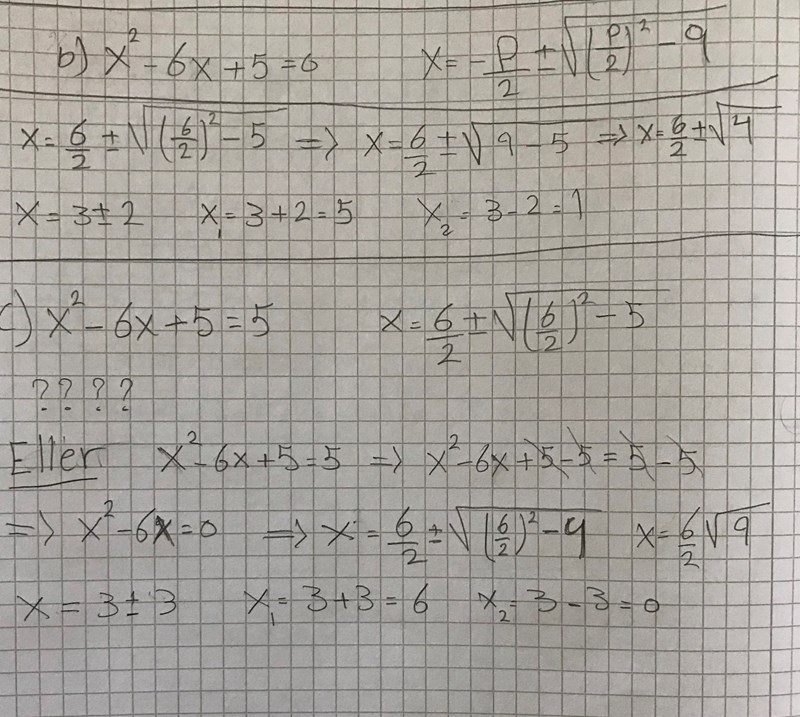 b) x² - 6x + 5 = 0 x = -p/2 ± √((p/2)² - q)
x = 6/2 ± √((6/2)² - 5) => x = 6/2 ± √(9 - 5) => x = 6/2 ± √4
x = 3 ± 2 x₁ = 3 + 2 = 5 x₂ = 3 - 2 = 1
c) x² - 6x + 5 = 5 x = 6/2 ± √((6/2)² - 5)
? ? ? ?
Eller x² - 6x + 5 = 5 => x² - 6x + 5 - 5 = 5 - 5
=> x² - 6x = 0 => x = 6/2 ± √((6/2)² - q) x = 6/2 √9
x = 3 ± 3 x₁ = 3 + 3 = 6 x₂ = 3 - 3 = 0